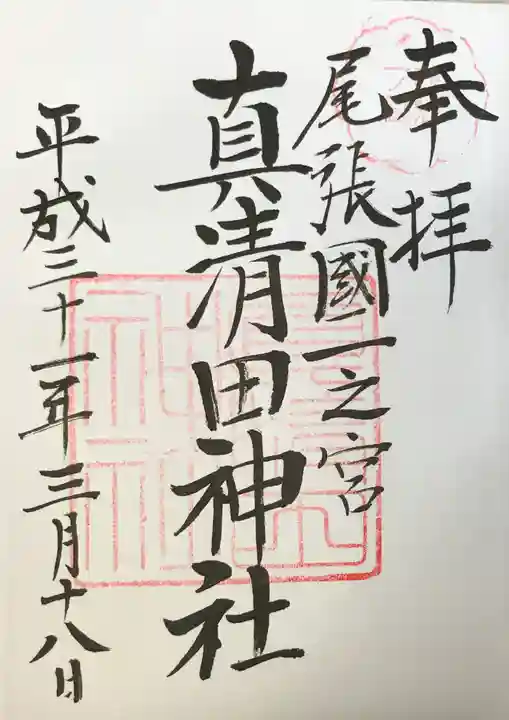 奉拝
尾張國一之宮
真清田神社
平成三十一年三月十八日